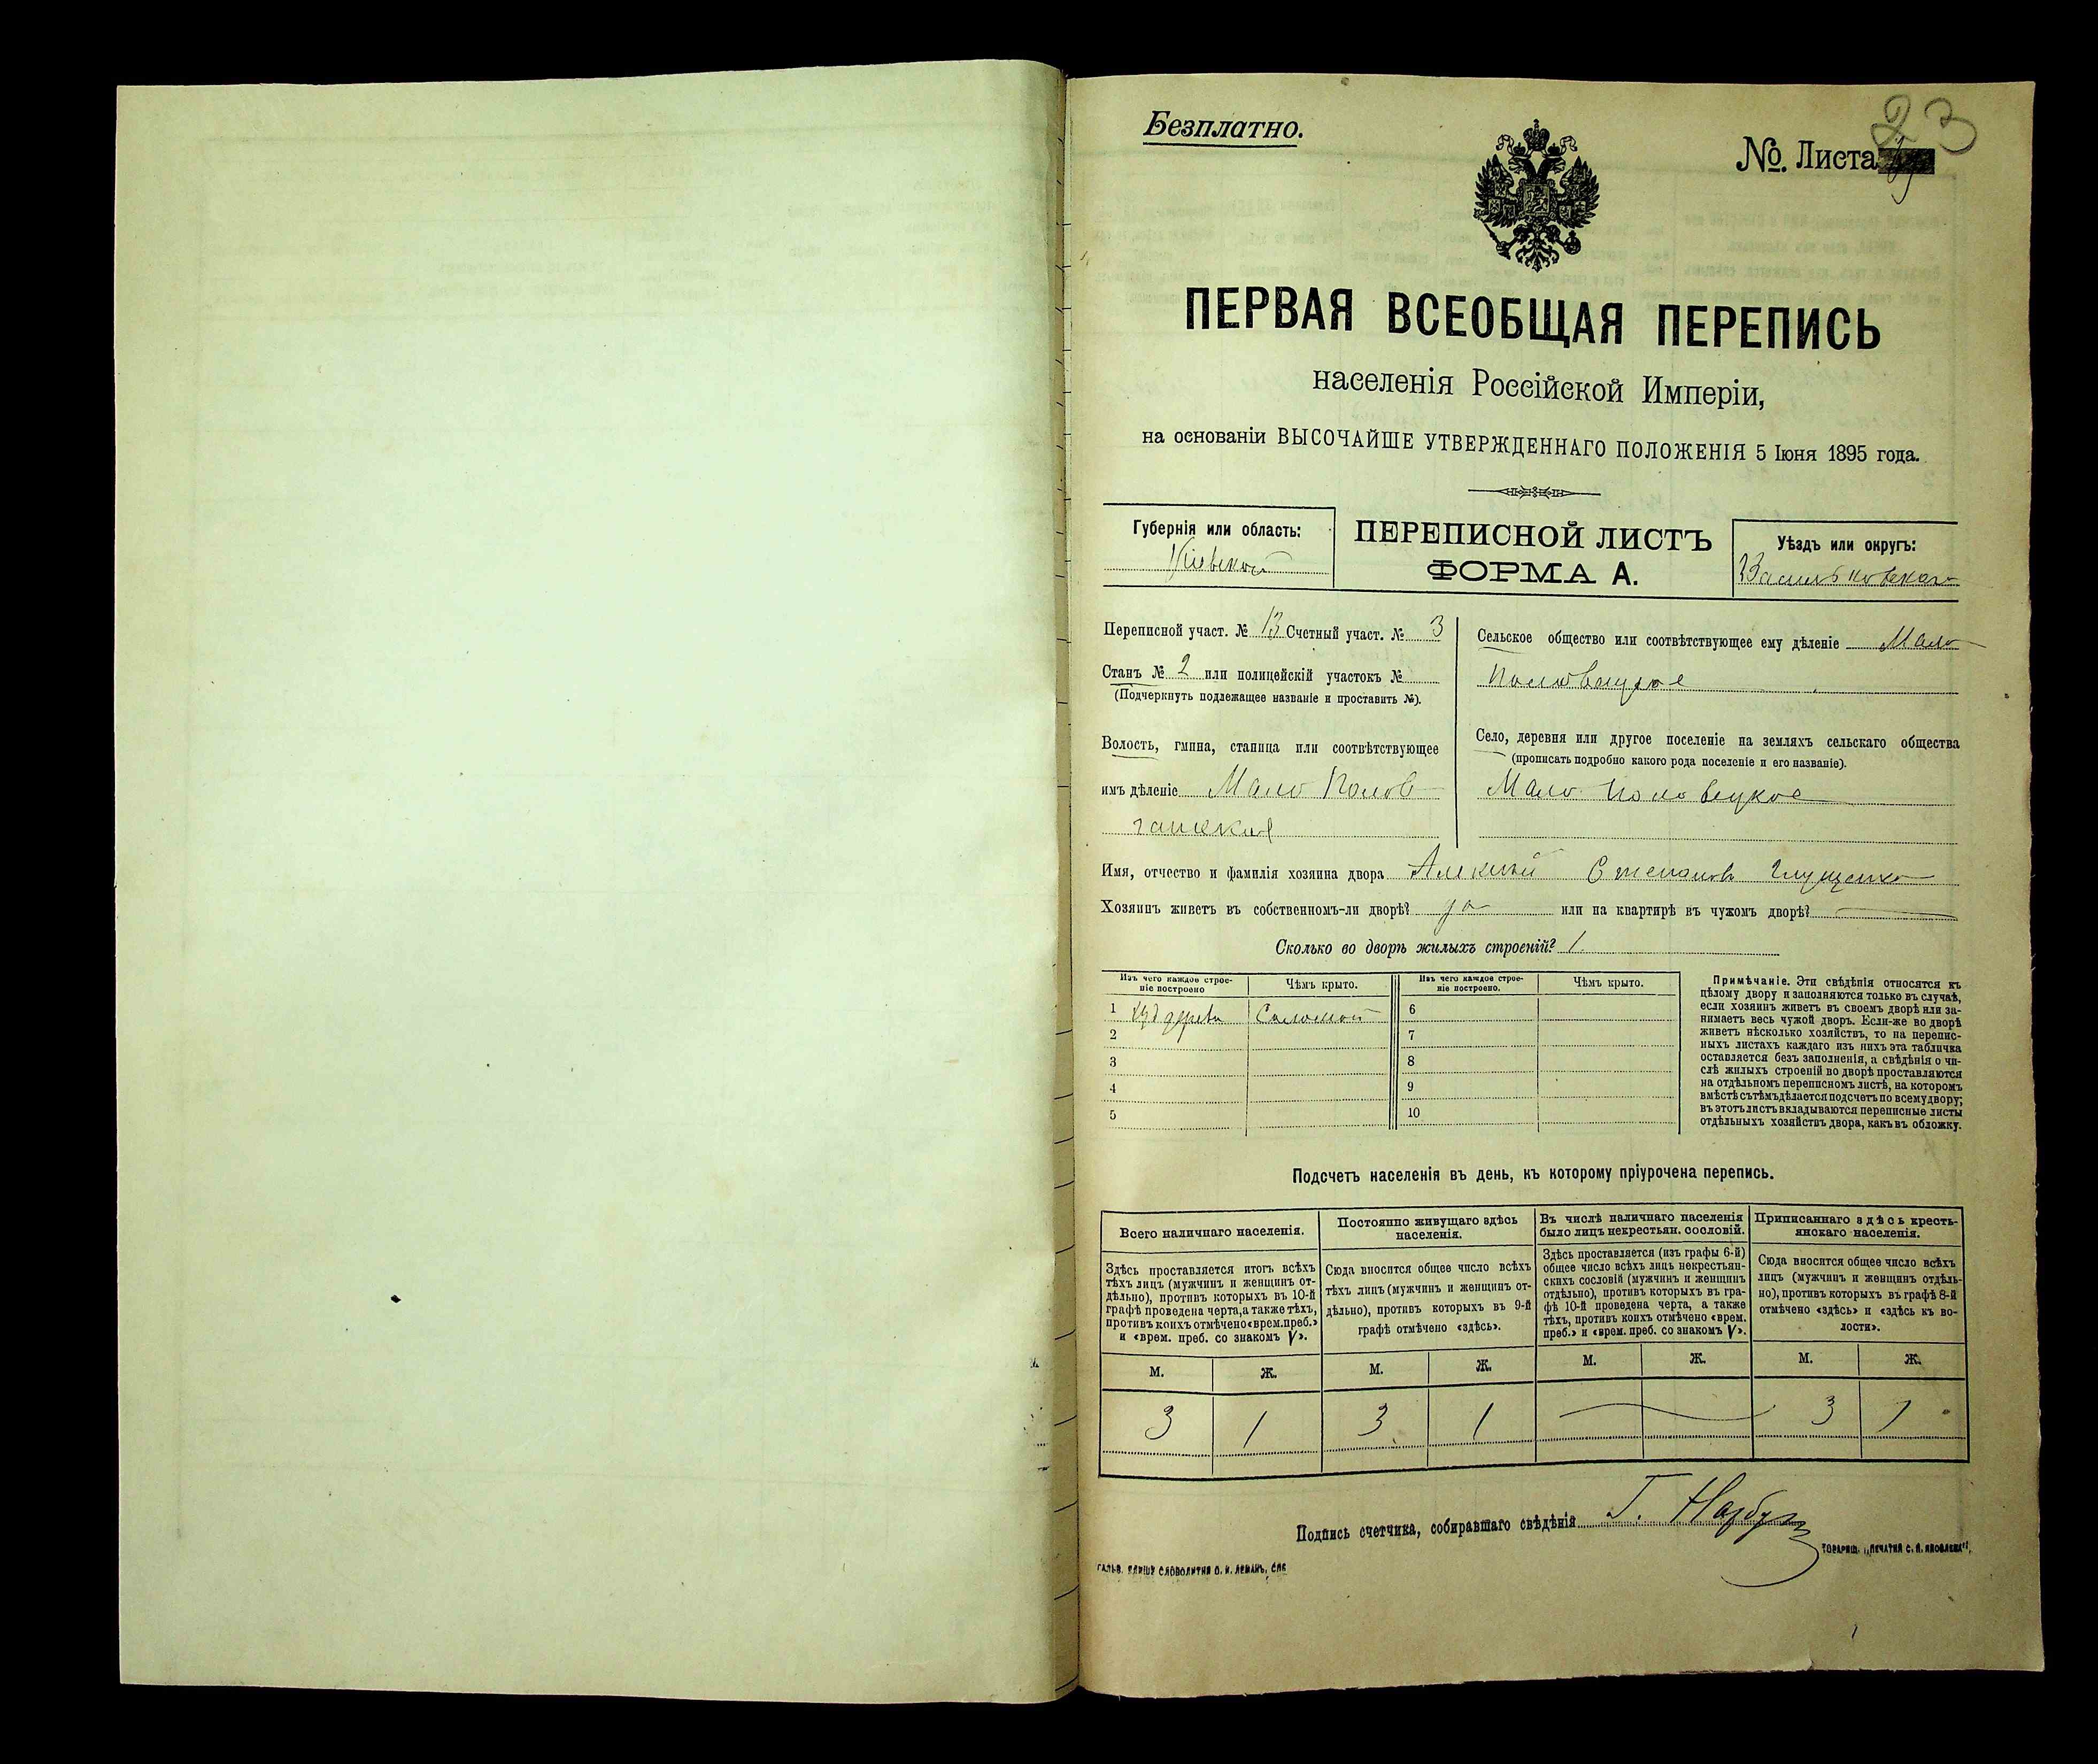 Безплатно.
23
№. Листа
ПЕРВАЯ ВСЕОБЩАЯ ПЕРЕПИСЬ
населенія Россійской Имперіи,
на основаніи ВЫСОЧАЙШЕ УТВЕРЖДЕННАГО ПОЛОЖЕНІЯ 5 Іюня 1895 года.
Губернія или область:
Кіевской
ПЕРЕПИСНОЙ ЛИСТЪ
ФОРМА А.
Уѣздъ или округъ:
Васильковскаго
Переписной участ. № 13 Счетный участ. № 3
Станъ № 2 или полицейскій участокъ №
(Подчеркнуть подлежащее названіе и проставить №).
Волость, гмина, станица или соотвѣтствующее
имъ дѣленіе Мало Полов
Сельское общество или соотвѣтствующее ему дѣленіе Мало
Половецкое
Село, деревня или другое поселеніе на земляхъ сельскаго общества
(прописать подробно какого рода поселеніе и его названіе).
Мало Половецкое
Имя, отчество и фамилія хозяина двора Алексѣй Степановъ Глущенко
Хозяинъ живетъ въ собственномъ-ли дворѣ? да или на квартирѣ въ чужомъ дворѣ?
Сколько во дворѣ жилыхъ строеній? 1
Изъ чего каждое строе-
ніе построено
Чѣмъ крыто.
Изъ чего каждое строе-
ніе построено.
Чѣмъ крыто.
1 изъ дерева Соломой 6
2 7
3 8
4 9
5 10
Примѣчаніе. Эти свѣдѣнія относятся къ
цѣлому двору и заполняются только въ случаѣ,
если хозяинъ живетъ въ своемъ дворѣ или за-
нимаетъ весь чужой дворъ. Если-же во дворѣ
живетъ нѣсколько хозяйствъ, то на перепис-
ныхъ листахъ каждаго изъ нихъ эта табличка
оставляется безъ заполненія, а свѣдѣнія о чи-
слѣ жилыхъ строеній во дворѣ проставляются
на отдѣльномъ переписномъ листѣ, на которомъ
вмѣстѣ съ тѣмъ дѣлается подсчетъ по всему двору;
въ этотъ листъ вкладываются переписные листы
отдѣльныхъ хозяйствъ двора, какъ въ обложку.
Подсчетъ населенія въ день, къ которому пріурочена перепись.
Всего наличнаго населенія.
Здѣсь проставляется итогъ всѣхъ
тѣхъ лицъ (мужчинъ и женщинъ от-
дѣльно), противъ которыхъ въ 10-й
графѣ проведена черта, а также тѣхъ,
противъ коихъ отмѣчено «врем. преб.»
и «врем. преб. со знакомъ V».
Постоянно живущаго здѣсь
населенія.
Сюда вносится общее число всѣхъ
тѣхъ лицъ (мужчинъ и женщинъ от-
дѣльно), противъ которыхъ въ 9-й
графѣ отмѣчено «здѣсь».
Въ числѣ наличнаго населенія
было лицъ некрестьян. сословій.
Здѣсь проставляется (изъ графы 6-й)
общее число всѣхъ лицъ некрестьян-
скихъ сословій (мужчинъ и женщинъ
отдѣльно), противъ которыхъ въ гра-
фѣ 10-й проведена черта, а также
тѣхъ, противъ коихъ отмѣчено «врем.
преб.» и «врем. преб. со знакомъ V».
Приписаннаго здѣсь кресть-
янскаго населенія.
Сюда вносится общее число всѣхъ
лицъ (мужчинъ и женщинъ отдѣль-
но), противъ которыхъ въ графѣ 8-й
отмѣчено «здѣсь» и «здѣсь къ во-
лости».
М. Ж. М. Ж. М. Ж. М. Ж.
3 1 3 1 3 1
Подпись счетчика, собиравшаго свѣдѣнія Г. Нарбут
ГАЛЬВ. КЛИШЕ СЛОВОЛИТНИ О. И. ЛЕМАНЪ, СПБ
ТОВАРИЩ. „ПЕЧАТНЯ С. П. ЯКОВЛЕВА“.